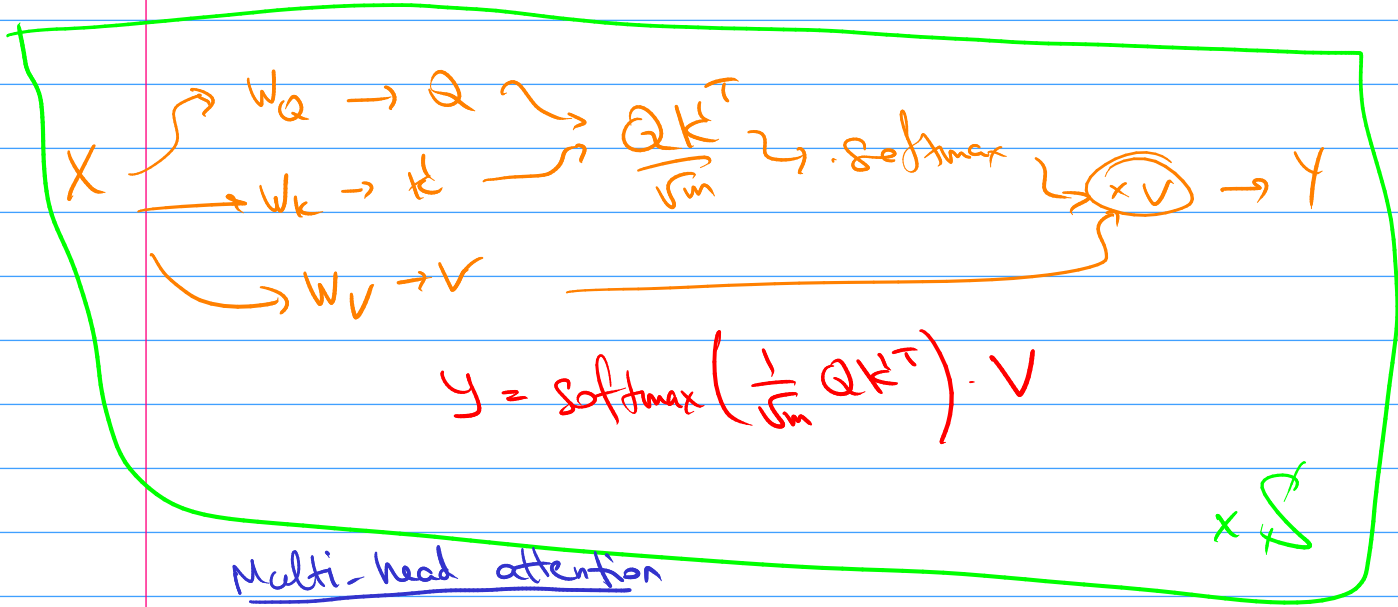 X → W_Q → Q → QK^T / √m → softmax → × V → Y
→ W_K → K
→ W_V → V
y = softmax ( 1/√m QK^T ) · V
x
Multi-head attention